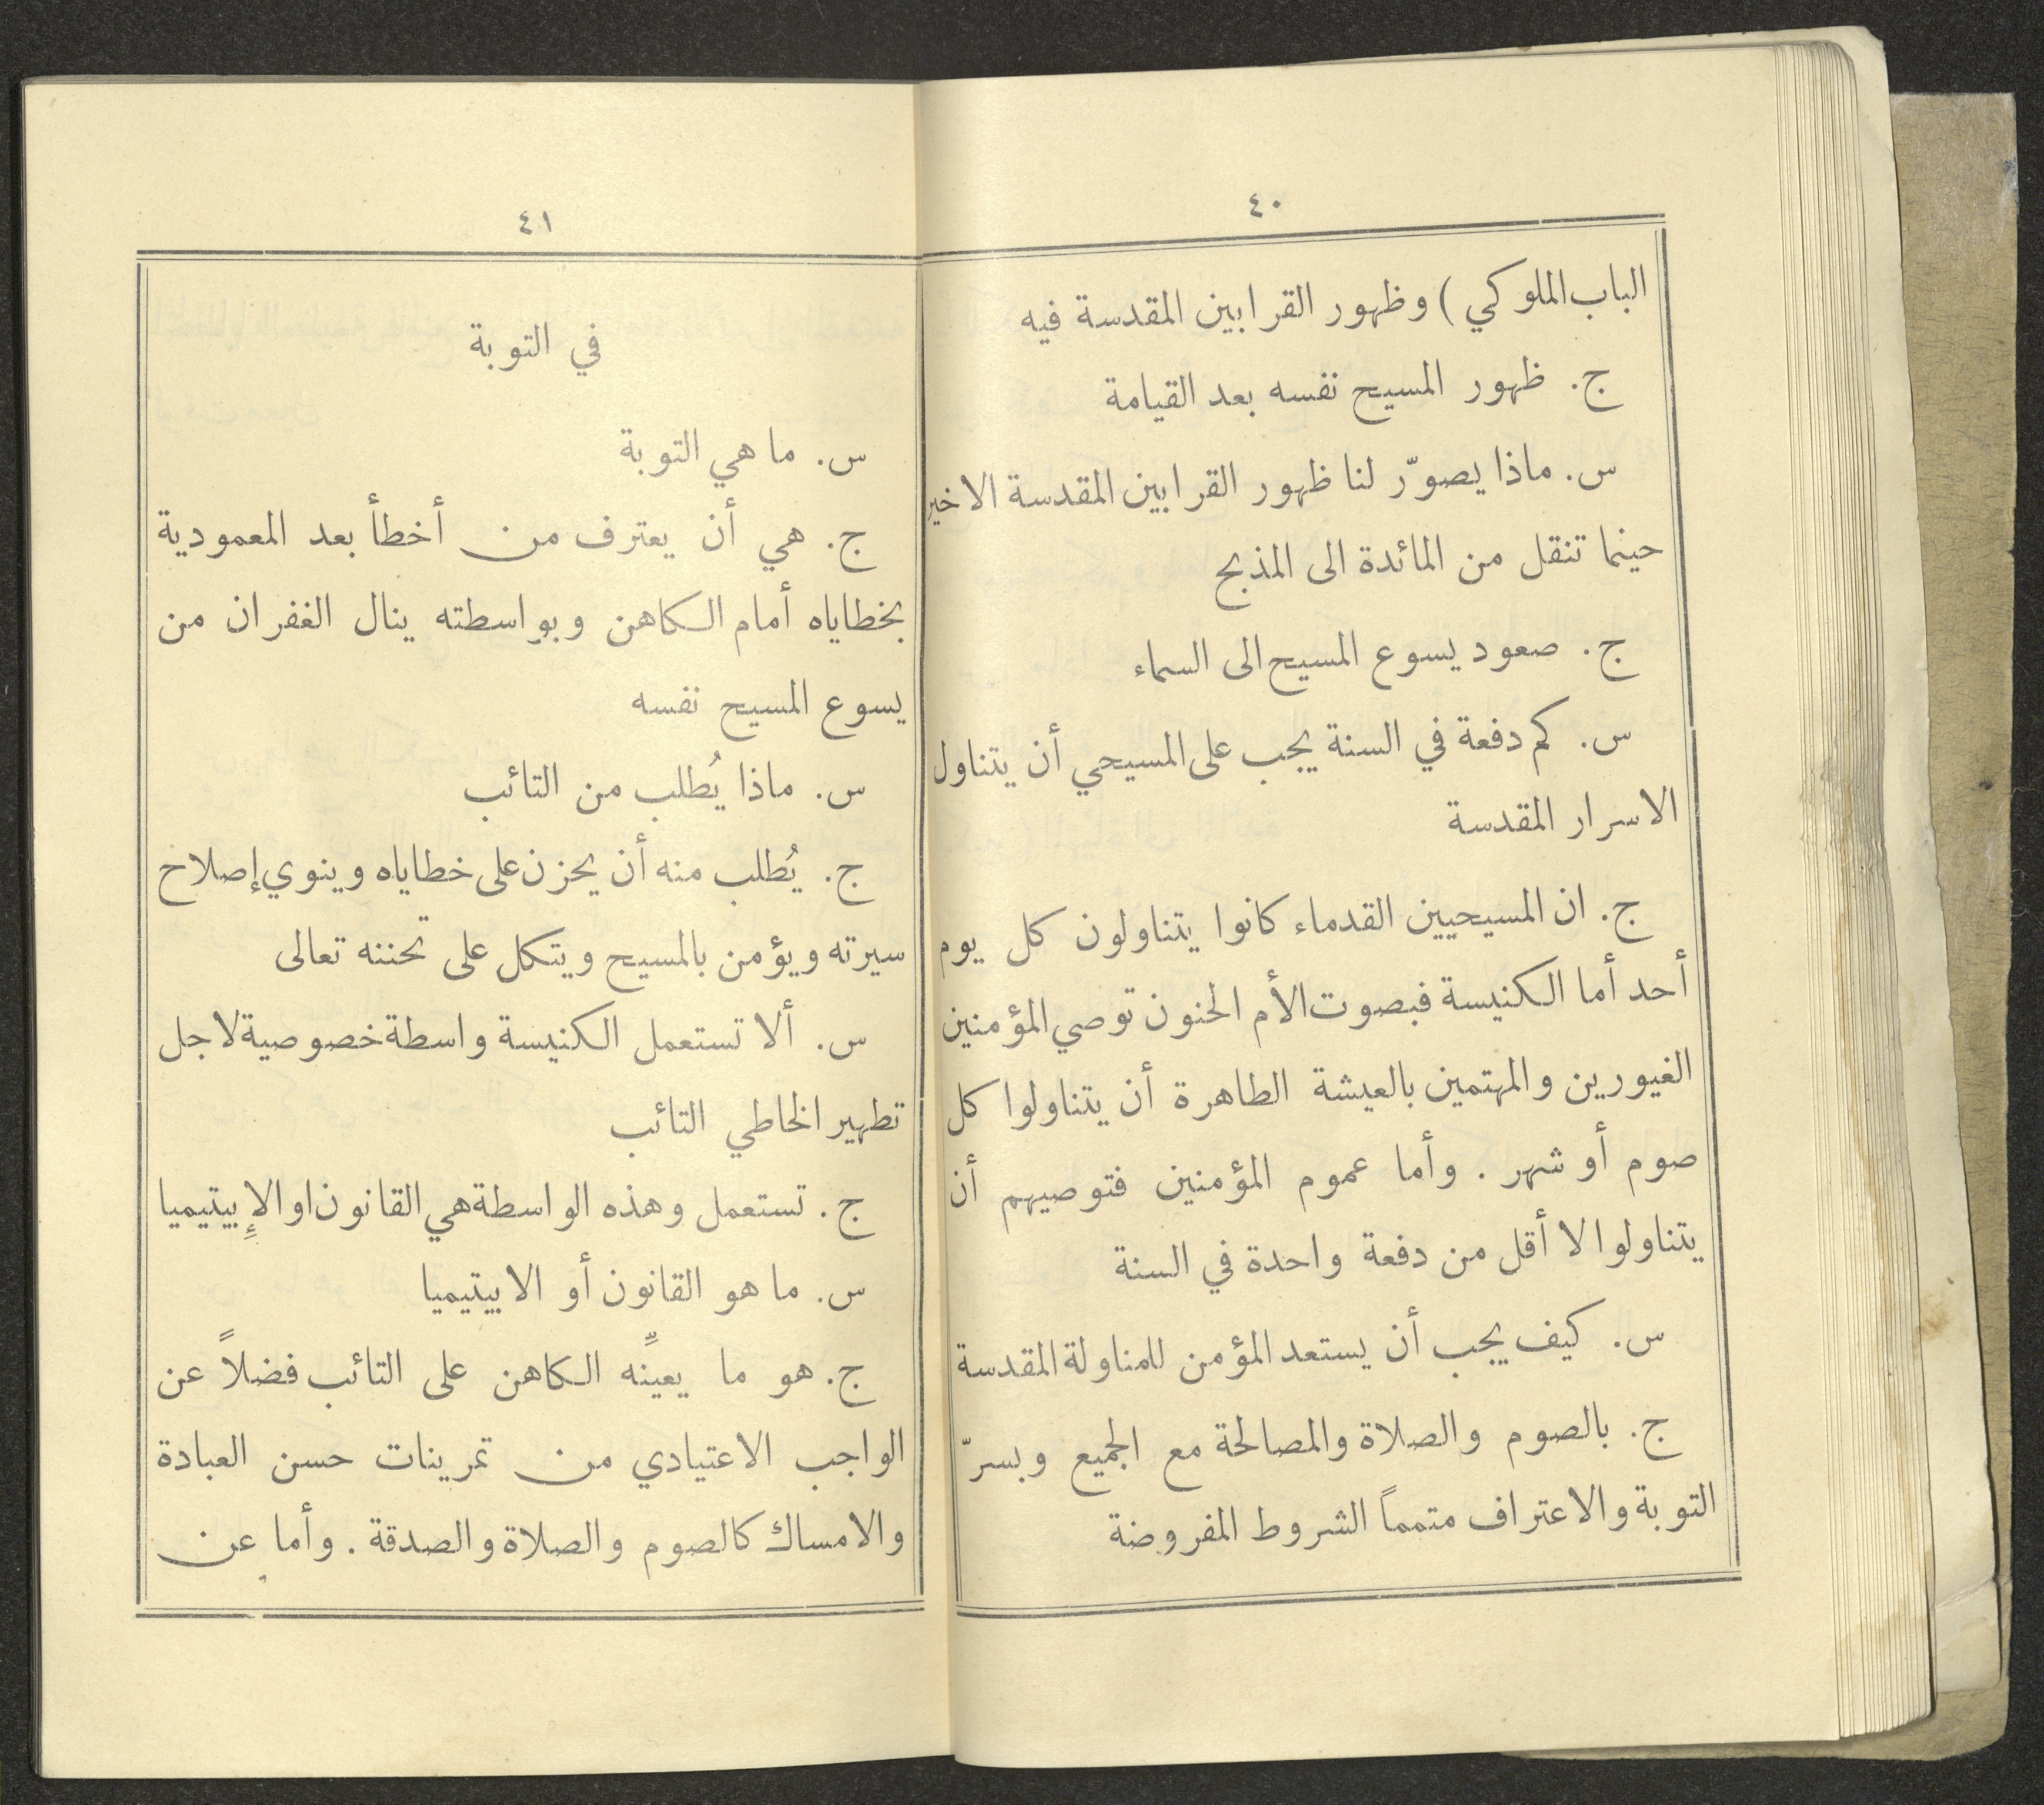 ٤٠
الباب الملوكي) وظهور القرابين المقدسة فيه
ج. ظهور المسيح نفسه بعد القيامة
س. ماذا يصوّر لنا ظهور القرابين المقدسة الاخير
حينما تنقل من المائدة الى المذبح
ج. صعود يسوع المسيح الى السماء
س. كم دفعة في السنة يجب على المسيحي أن يتناول
الاسرار المقدسة
ج. ان المسيحيين القدماء كانوا يتناولون كل يوم
أحد أما الكنيسة فبصوت الأم الحنون توصي المؤمنين
الغيورين والمهتمين بالعيشة الطاهرة أن يتناولوا كل
صوم أو شهر. وأما عموم المؤمنين فتوصيهم أن
يتناولوا لا أقل من دفعة واحدة في السنة
س. كيف يجب أن يستعد المؤمن للمناولة المقدسة
ج. بالصوم والصلاة والمصالحة مع الجميع وبسرّ
التوبة والاعتراف متمماً الشروط المفروضة
٤١
في التوبة
س. ما هي التوبة
ج. هي أن يعترف من أخطأ بعد المعمودية
بخطاياه أمام الكاهن وبواسطته ينال الغفران من
يسوع المسيح نفسه
س. ماذا يُطلب من التائب
ج. يُطلب منه أن يحزن على خطاياه وينوي إصلاح
سيرته ويؤمن بالمسيح ويتكل على تحننه تعالى
س. ألا تستعمل الكنيسة واسطة خصوصية لاجل
تطهير الخاطي التائب
ج. تستعمل وهذه الواسطة هي القانون او الإبيتيميا
س. ما هو القانون أو الابيتيميا
ج. هو ما يعيّنه الكاهن على التائب فضلاً عن
الواجب الاعتيادي من تمرينات حسن العبادة
والامساك كالصوم والصلاة والصدقة. وأما عن